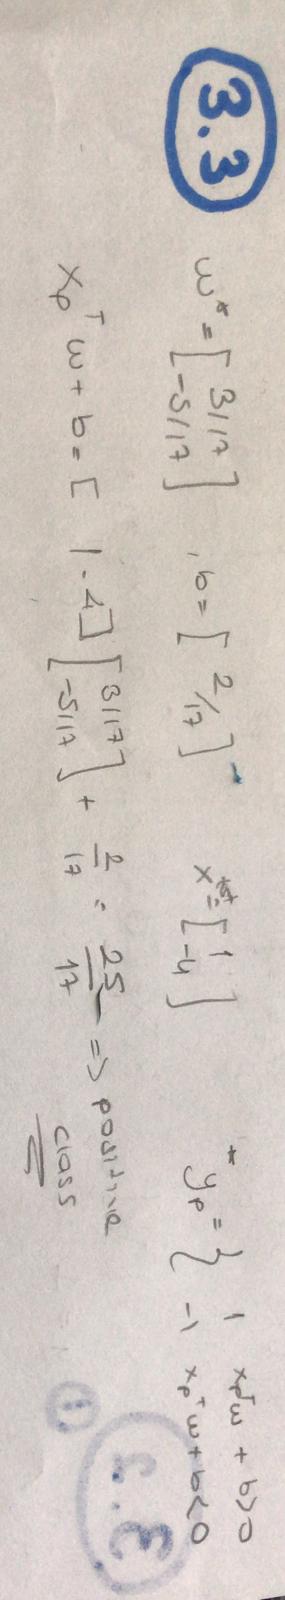 3.3
w* = [ 3/17 -5/17 ] , b = [ 2/17 ] x^tst = [ 1 -4 ] * yp = { 1 xpᵀw + b>0
-1 xpᵀw + b<0
3.2
xpᵀ w + b = [ 1 -4 ] [ 3/17 -5/17 ] + 2/17 = 25/17 => positive
class